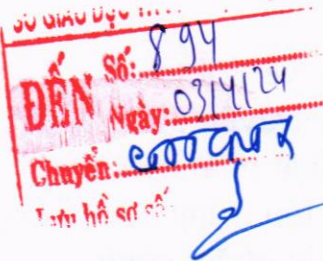 SỞ GIÁO DỤC
ĐẾN Số: 894
Ngày: 03/4/24
Chuyển:
Lưu hồ sơ số